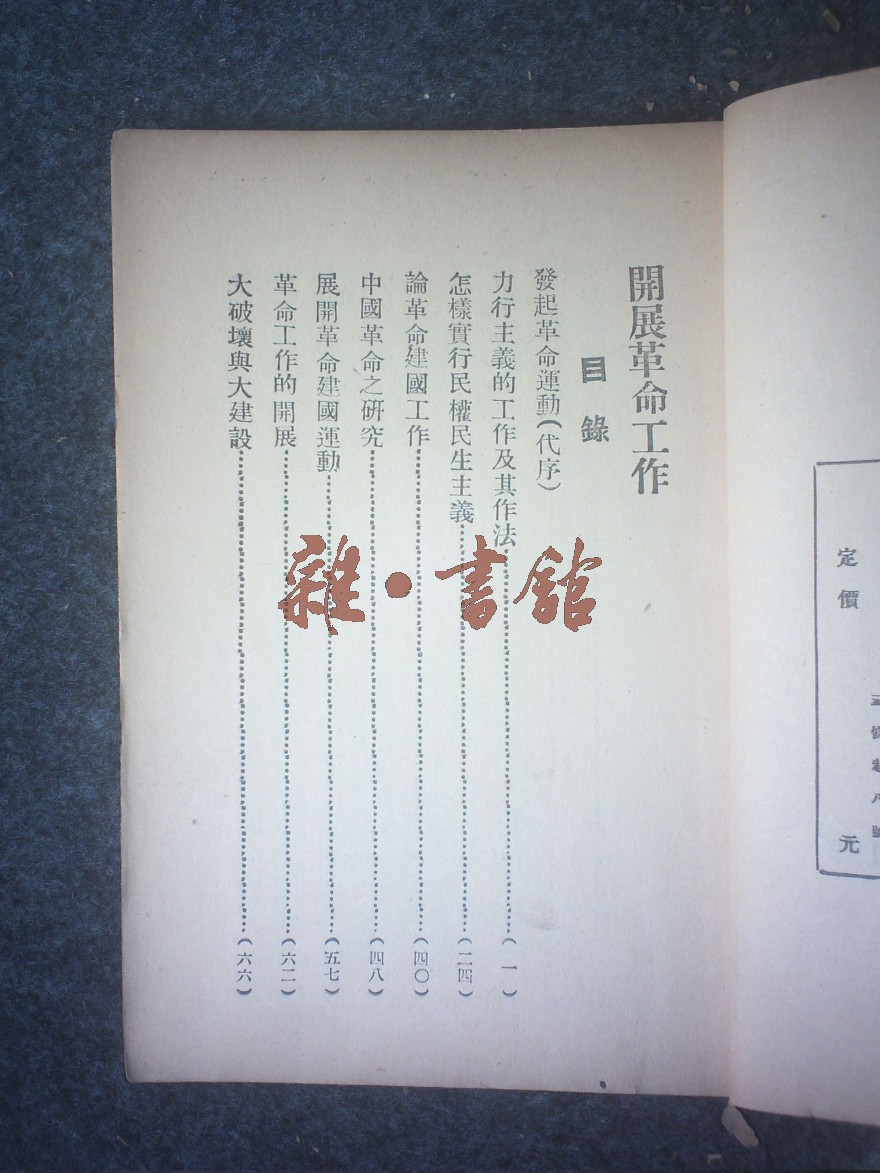 定價
元
開展革命工作
目錄
發起革命運動(代序)
力行主義的工作及其作法…………(一)
怎樣實行民權民生主義…………(二四)
論革命建國工作…………(四〇)
中國革命之研究…………(四八)
展開革命建國運動…………(五七)
革命工作的開展…………(六二)
大破壞與大建設…………(六六)
雜·書館